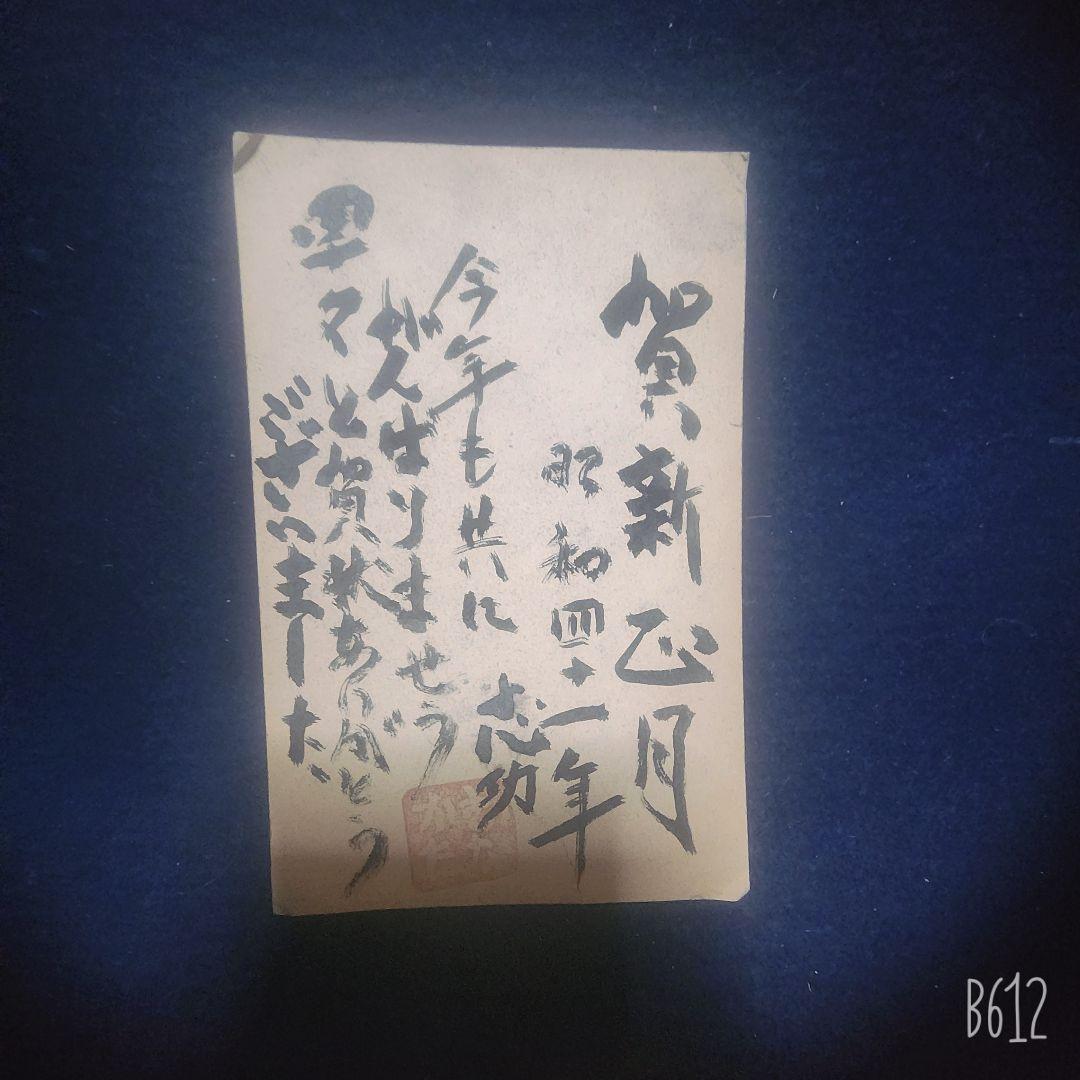 賀新正月
昭和四十一年
志功
今年も共に
がんばりませう
早々と賀状ありがとう
ございました
B612